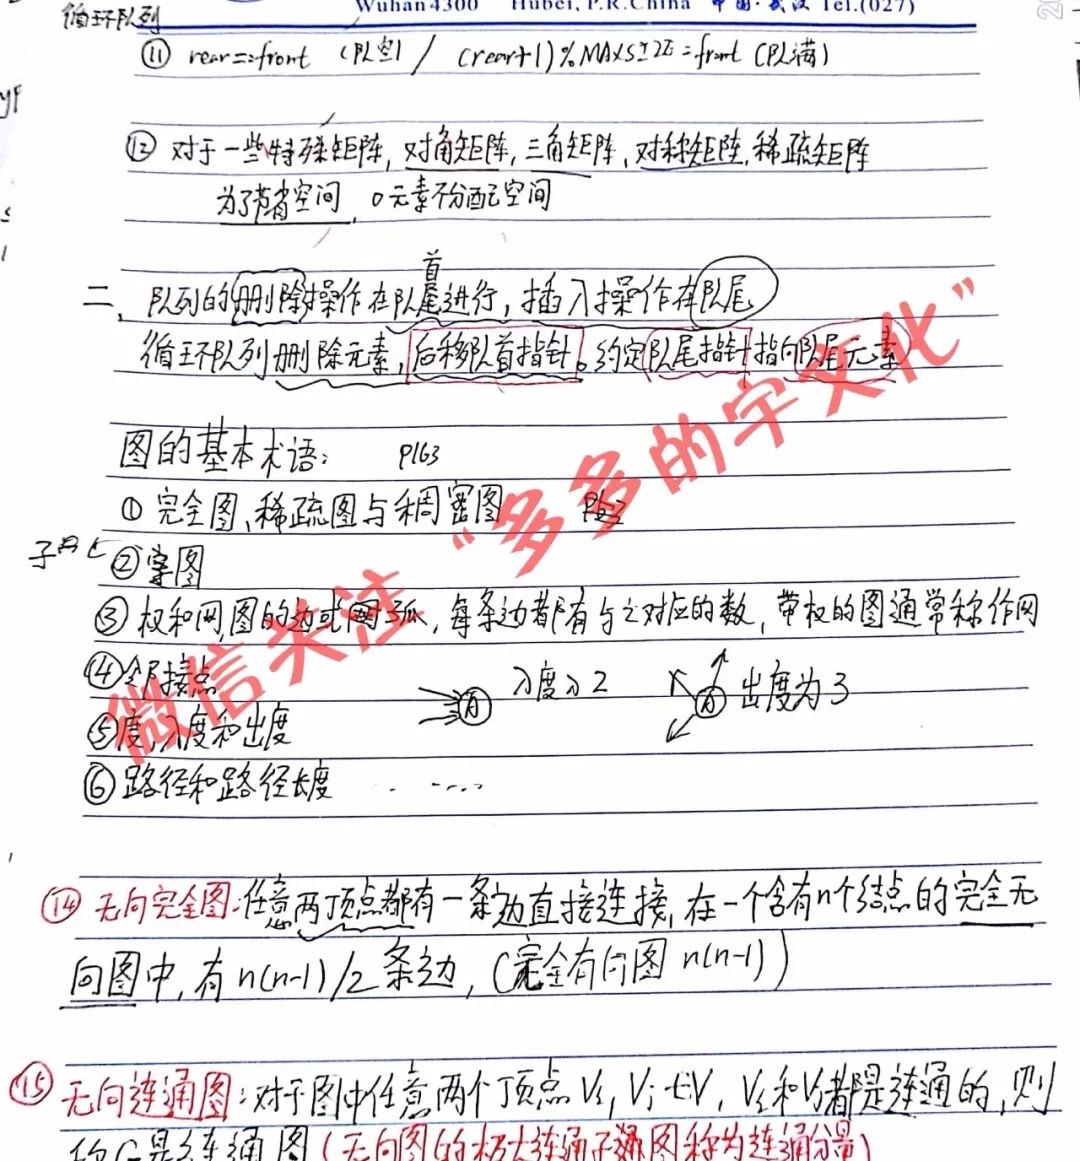 Wuhan4300 Hubei, P.R.China 中国·武汉 Tel.(027)
循环队列
⑪ rear==front (队空) / (rear+1)%MAXSIZE=front (队满)
⑫ 对于一些特殊矩阵, 对角矩阵, 三角矩阵, 对称矩阵, 稀疏矩阵
为了节省空间, 0元素不分配空间
首
二、队列的删除操作在队尾进行, 插入操作在队尾
循环队列删除元素, 后移队首指针。约定队尾指针指向队尾元素
图的基本术语: P163
① 完全图、稀疏图与稠密图
② 图
③ 权和网图的边或弧, 每条边都有与之对应的数, 带权的图通常称作网
④ 邻接点 入度入2 出度为3
⑤ 度,入度和出度
⑥ 路径和路径长度 . ....
微信关注“多多的宇文化”
⑭ 无向完全图:任意两顶点都有一条边直接连接, 在一个含有n个结点的完全无
向图中, 有n(n-1)/2条边, (完全有向图 n(n-1))
⑮ 无向连通图:对于图中任意两个顶点Vi, Vj∈V, Vi和Vj都是连通的, 则
称G是连通图(无向图的极大连通子图称为连通分量)